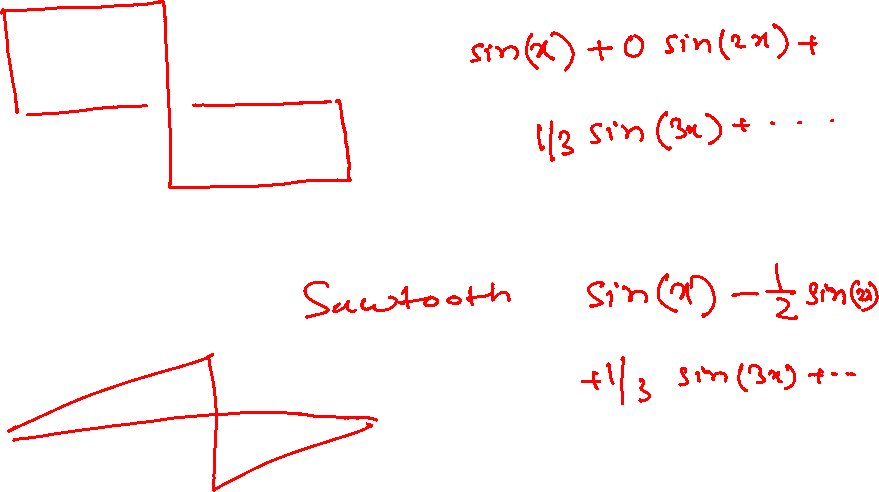 sin(x) + 0 sin(2x) +
1/3 sin(3x) + ....
Sawtooth sin(x) - 1/2 sin(2x)
+ 1/3 sin(3x) + ..